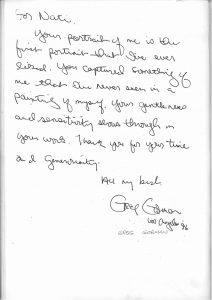 For Nate.
Your portrait of me is the
first portrait that I've ever
liked. You captured something of
me that I've never seen in a
painting of myself. Your gentleness
and sensitivity shows through in
your work. Thank you for your time
and generosity.
All my best
Greg Gorman
Los Angeles 96
GREG GORMAN